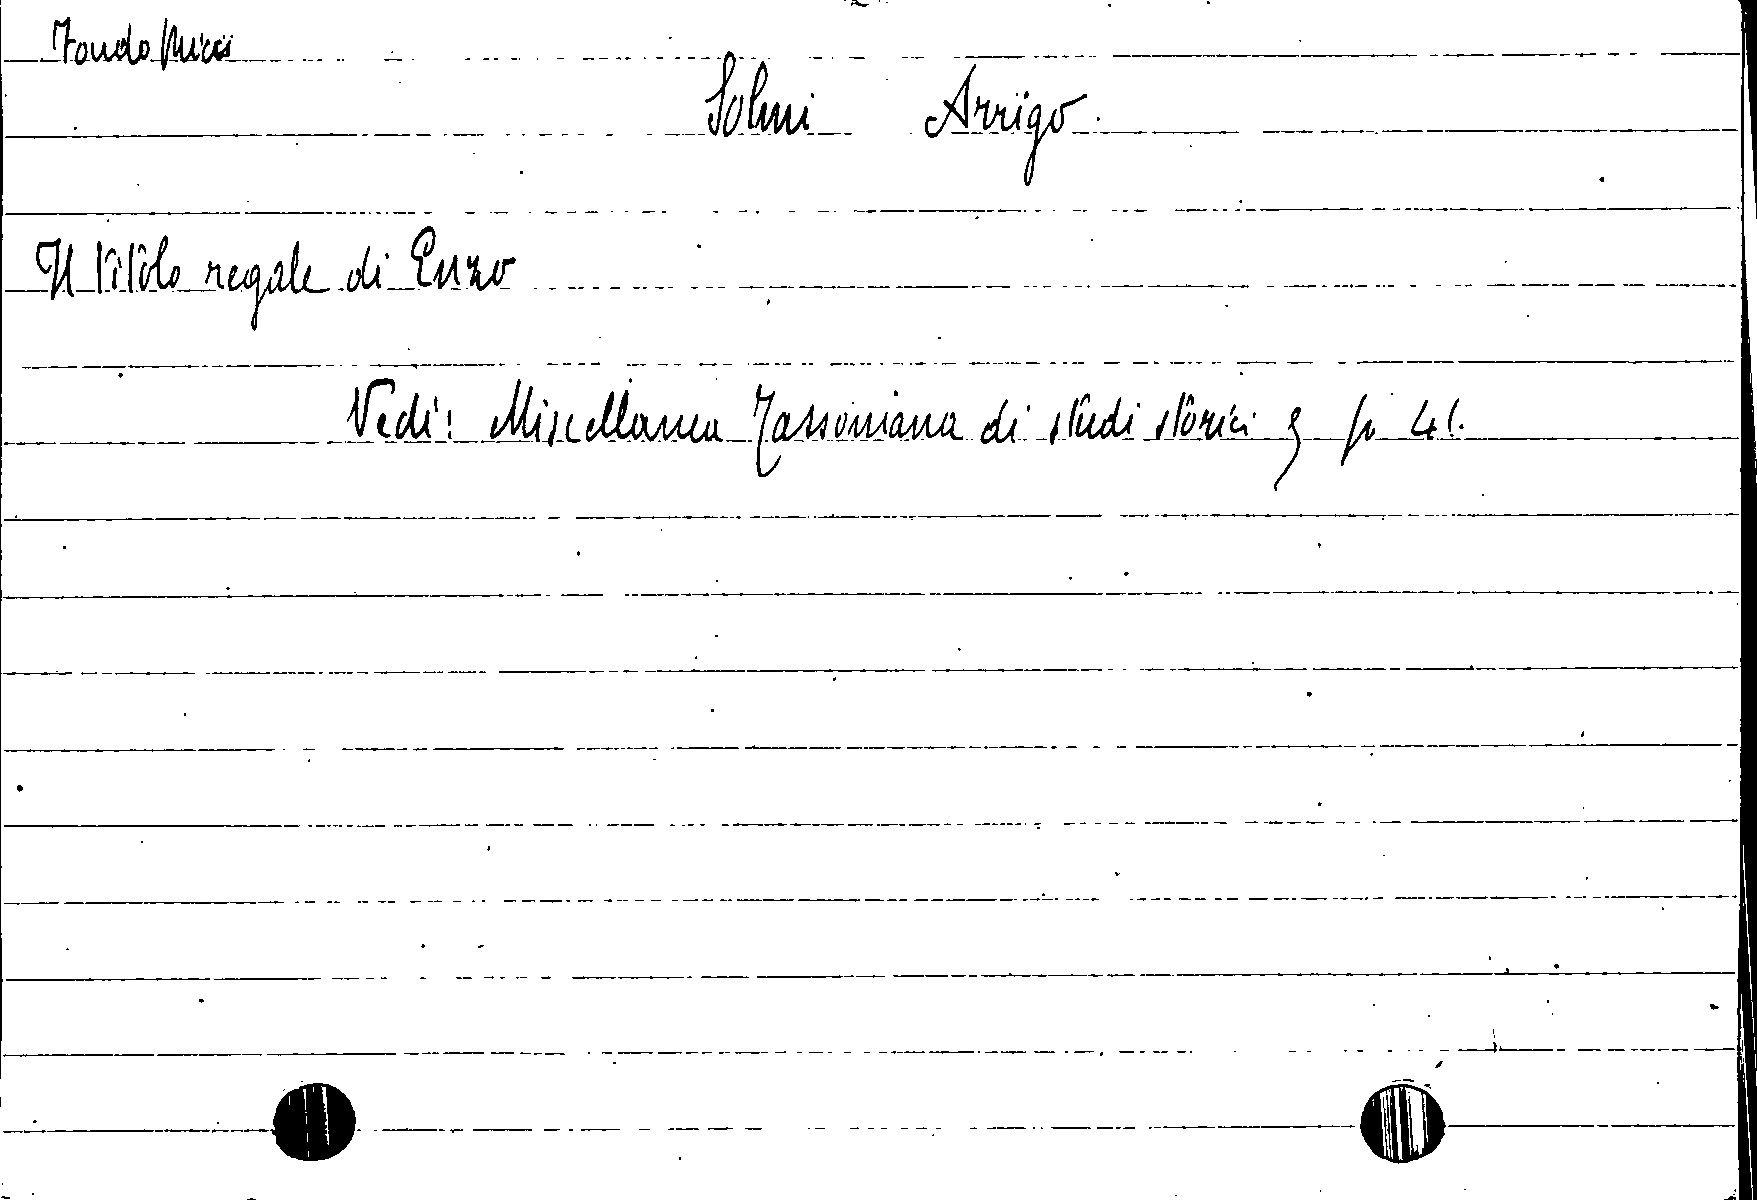 Fondo Ricci
Solmi Arrigo.
Il titolo regale di Enzo
Vedi: Miscellanea Tassoniana di studi storici p 41.